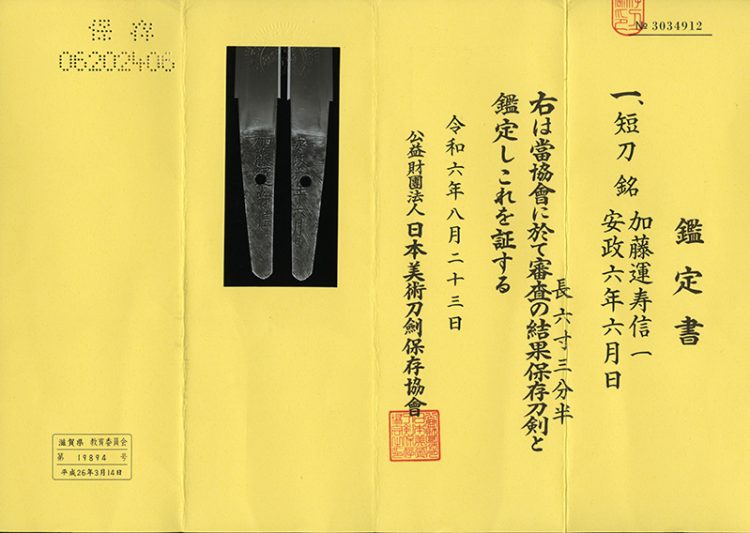 № 3034912
鑑定書
一、短刀 銘 加藤運寿信一
安政六年六月日
長六寸三分半
右は當協會に於て審査の結果保存刀剣と
鑑定しこれを証する
令和六年八月二十三日
公益財團法人日本美術刀劍保存協會
保存
06202406
滋賀県 教育委員会
第 19894 号
平成26年3月14日